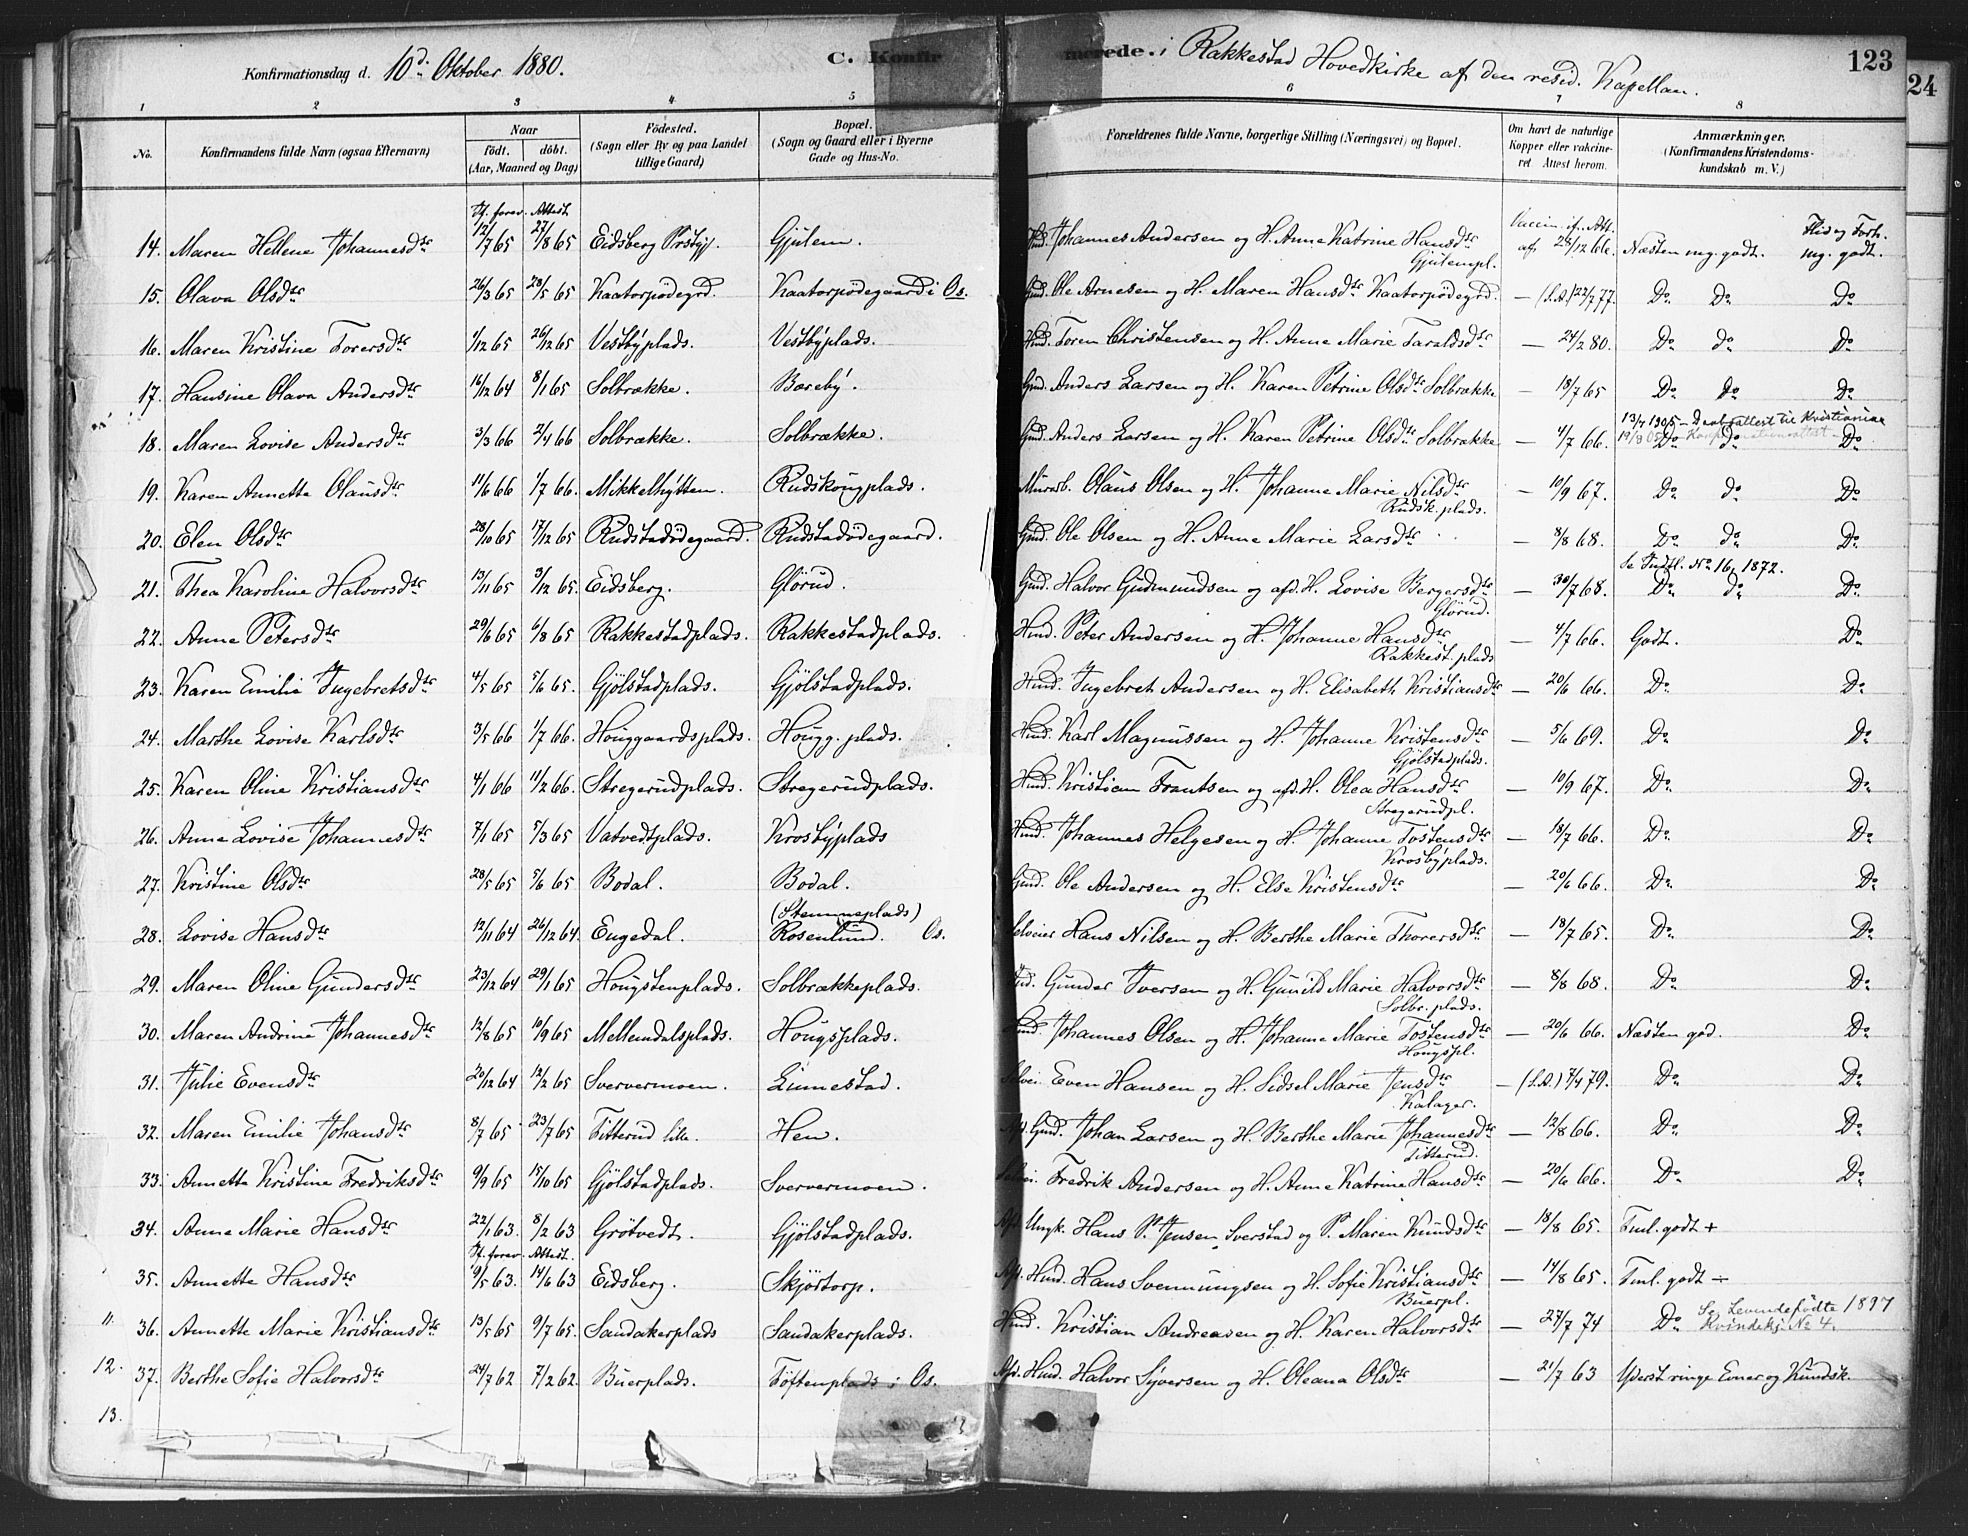 Konfirmationsdag d. 10d. Oktober 1880. C. Konfirmerede i Rakkestad Hovedkirke af den resid. Kapellan. 123
24
1 2 3 4 5 6 7 8
No. Konfirmandens fulde Navn (ogsaa Efternavn) Naar født. døbt. (Aar, Maaned og Dag) Fødested. (Sogn eller By og paa Landet tillige Gaard) Bopæl. (Sogn og Gaard eller i Byerne Gade og Hus-No. Forældrenes fulde Navne, borgerlige Stilling (Næringsvei) og Bopæl. Om havt de naturlige Kopper eller vakcineret Attest herom. Anmærkninger. (Konfirmandens Kristendomskundskab m. V.)
If. forev. Attest
14. Maren Hellene Johannesdtr 12/7 65 27/8 65 Eidsberg Prstgj. Gjulem. Hmd. Johannes Andersen og H. Anne Katrine Hansdtr Gjulempl. Vaccin. if. Att. af 28/12 66. Næsten mg. godt. Flid og Forh. mg. godt.
15. Olava Olsdtr 26/3 65 28/5 65 Kaatorpødegrd. Kaatorpødegaard i Os. Gmd. Ole Arnesen og H. Maren Hansdtr Kaatorpødegrd. — (S.A.) 22/7 77. Do do Do
16. Maren Kristine Torersdtr 1/12 65 26/12 65 Vestbyplads. Vestbyplads. Hmd. Toren Christensen og H. Anne Marie Taraldsdtr — 24/2 80. Do do Do
17. Hansine Olava Andersdtr 16/12 64 8/1 65 Solbrække. Bæreby. Gmd. Anders Larsen og H. Karen Petrine Olsdtr Solbrække — 18/7 65 Do do Do
13/7 1905 – Daabsattest til Kristiania
18. Maren Lovise Andersdtr 3/3 66 2/4 66 Solbrække. Solbrække. Gmd. Anders Larsen og H. Karen Petrine Olsdtr Solbrække — 4/7 66. Do do Do
19. Karen Annette Olausdtr 11/6 66 1/7 66. Mikkelhytten. Rudskougplads. Murarb. Olaus Olsen og H. Johanne Marie Nilsdtr Rudsk. plads. — 10/9 67. Do do Do
20. Elen Olsdtr 28/10 65 17/12 65 Rudstadødegaard. Rudstadødegaard. Gmd. Ole Olsen og H. Anne Marie Larsdtr — 8/8 68. Do do Do
Se Indfl. No 16, 1872.
21. Thea Karoline Halvorsdtr 13/11 65 3/12 65. Eidsberg. Glørud. Gmd. Halvor Gudmundsen og afd. H. Lovise Bergersdtr Glørud. — 30/7 68. Do do Do
22. Anne Petersdtr 29/6 65 6/8 65 Rakkestadplads. Rakkestadplads. Hmd. Peter Andersen og H. Johanne Hansdtr Rakkest. plads — 4/7 66. Godt. Do
23. Karen Emilie Ingebretsdtr 4/5 65 5/6 65. Gjølstadplads. Gjølstadplads. Hmd. Ingebret Andersen og H. Elisabeth Kristiansdtr — 20/6 66. Do Do
24. Marthe Lovise Karlsdtr 3/5 66 1/7 66. Houggaardsplads. Hougg. plads. Hmd. Karl Magnussen og H. Johanne Kristensdtr Gjølstadplads. — 5/6 69. Do Do
25. Karen Oline Kristiansdtr 4/1 66 11/2 66. Stregerudplads. Stregerudplads. Hmd. Kristian Frantsen og afd. H. Olea Hansdtr Stregerudpl. — 10/9 67. Do Do
26. Anne Lovise Johannesdtr 7/1 65 5/3 65 Vatvedtplads. Krosbyplads Hmd. Johannes Helgesen og H. Johanne Tostensdtr Krosbyplads. — 18/7 66. Do Do
27. Kristine Olsdtr 28/5 65 5/6 65 Bodal. Bodal. Gmd. Ole Andersen og H. Else Kristensdtr — 20/6 66. Do Do
28. Lovise Hansdtr 12/11 64 26/12 64. Engedal. (Stemmeplads) Rosenlund. Os. Selveier Hans Nilsen og H. Berthe Marie Thorersdtr — 18/7 65. Do Do
29. Maren Oline Gundersdtr 23/12 64 29/1 65 Hougstenplads. Solbrækkeplads. Gunder Iversen og H. Gunild Marie Halvorsdtr Solbr. plads. — 8/8 68. Do Do
30. Maren Andrine Johannesdtr 12/8 65 10/9 65 Mellemdalsplads. Hougsplads. Hmd. Johannes Olsen og H. Johanne Marie Tostensdtr Hougspl. — 20/6 66. Næsten god. Do
31. Julie Evensdtr 20/12 64 12/2 65 Sververmoen. Lunestad. Selvei. Even Hansen og H. Sidsel Marie Jensdtr Kalager. — (S.A.) 7/4 79. Do Do
32. Maren Emilie Johansdtr 8/7 65 23/7 65 Titterud lille. Hen. Afd. Gmd. Johan Larsen og H. Berthe Marie Johannesdtr Titterud. — 12/8 66. Do Do
33. Annette Kristine Fredriksdtr 9/9 65 15/10 65 Gjølstadplads. Sververmoen. Selvei. Fredrik Andersen og H. Anne Katrine Hansdtr — 20/6 66. Do Do
34. Anne Marie Hansdtr 22/1 63. 8/2 63 Grøtvedt. Gjølstadplads. Afd. Ungk. Hans P. Jensen Sverstad og P. Maren Knudsdtr — 18/8 65. Tml. godt +
If. forev. Attest.
35. Annette Hansdtr 9/5 63. 14/6 63 Eidsberg. Skjørtorp. Afd. Hmd. Hans Svennungsen og H. Sofie Kristiansdtr Buerpl. — 14/8 65. Tml. godt ÷
11. 36. Annette Marie Kristiansdtr 13/5 65 9/7 65. Sandakerplads Sandakerplads. Hmd. Kristian Andreasen og H. Karen Halvorsdtr — 27/7 74 Do Se Levendefødte 1897 Kvindekj. No 4.
12. 37. Berthe Sofie Halvorsdtr 24/7 62 7/2 62. Buerplads. Tøftenplads i Os. Afd. Hmd. Halvor Syversen og H. Oleana Olsdtr — 21/7 63 Yderst ringe Evner og Kundsk.
13.